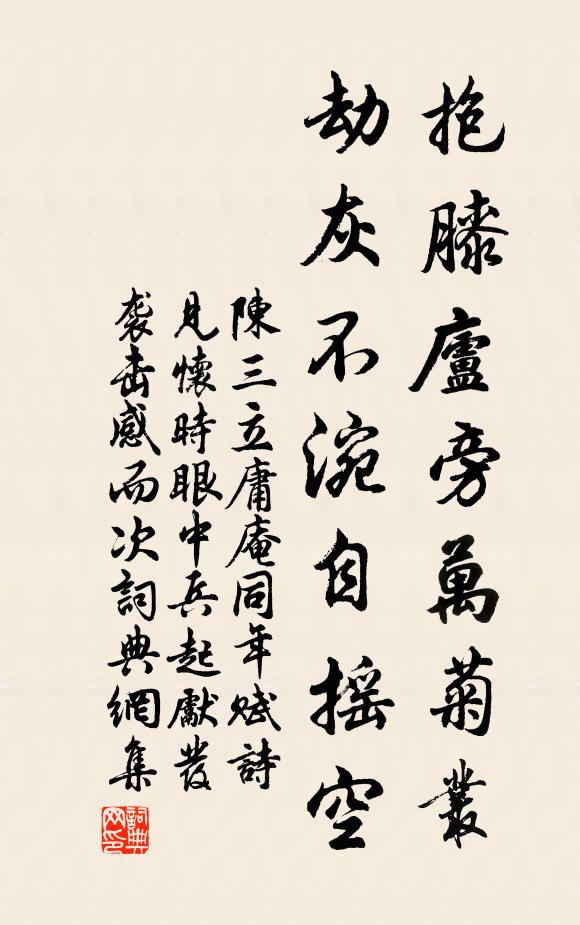 抱膝廬旁萬菊叢
劫灰不涴自摇空
陳三立庸庵同年賦詩
見懷時眼中兵起獻發
袭击感而次詞典網集
詞典网印